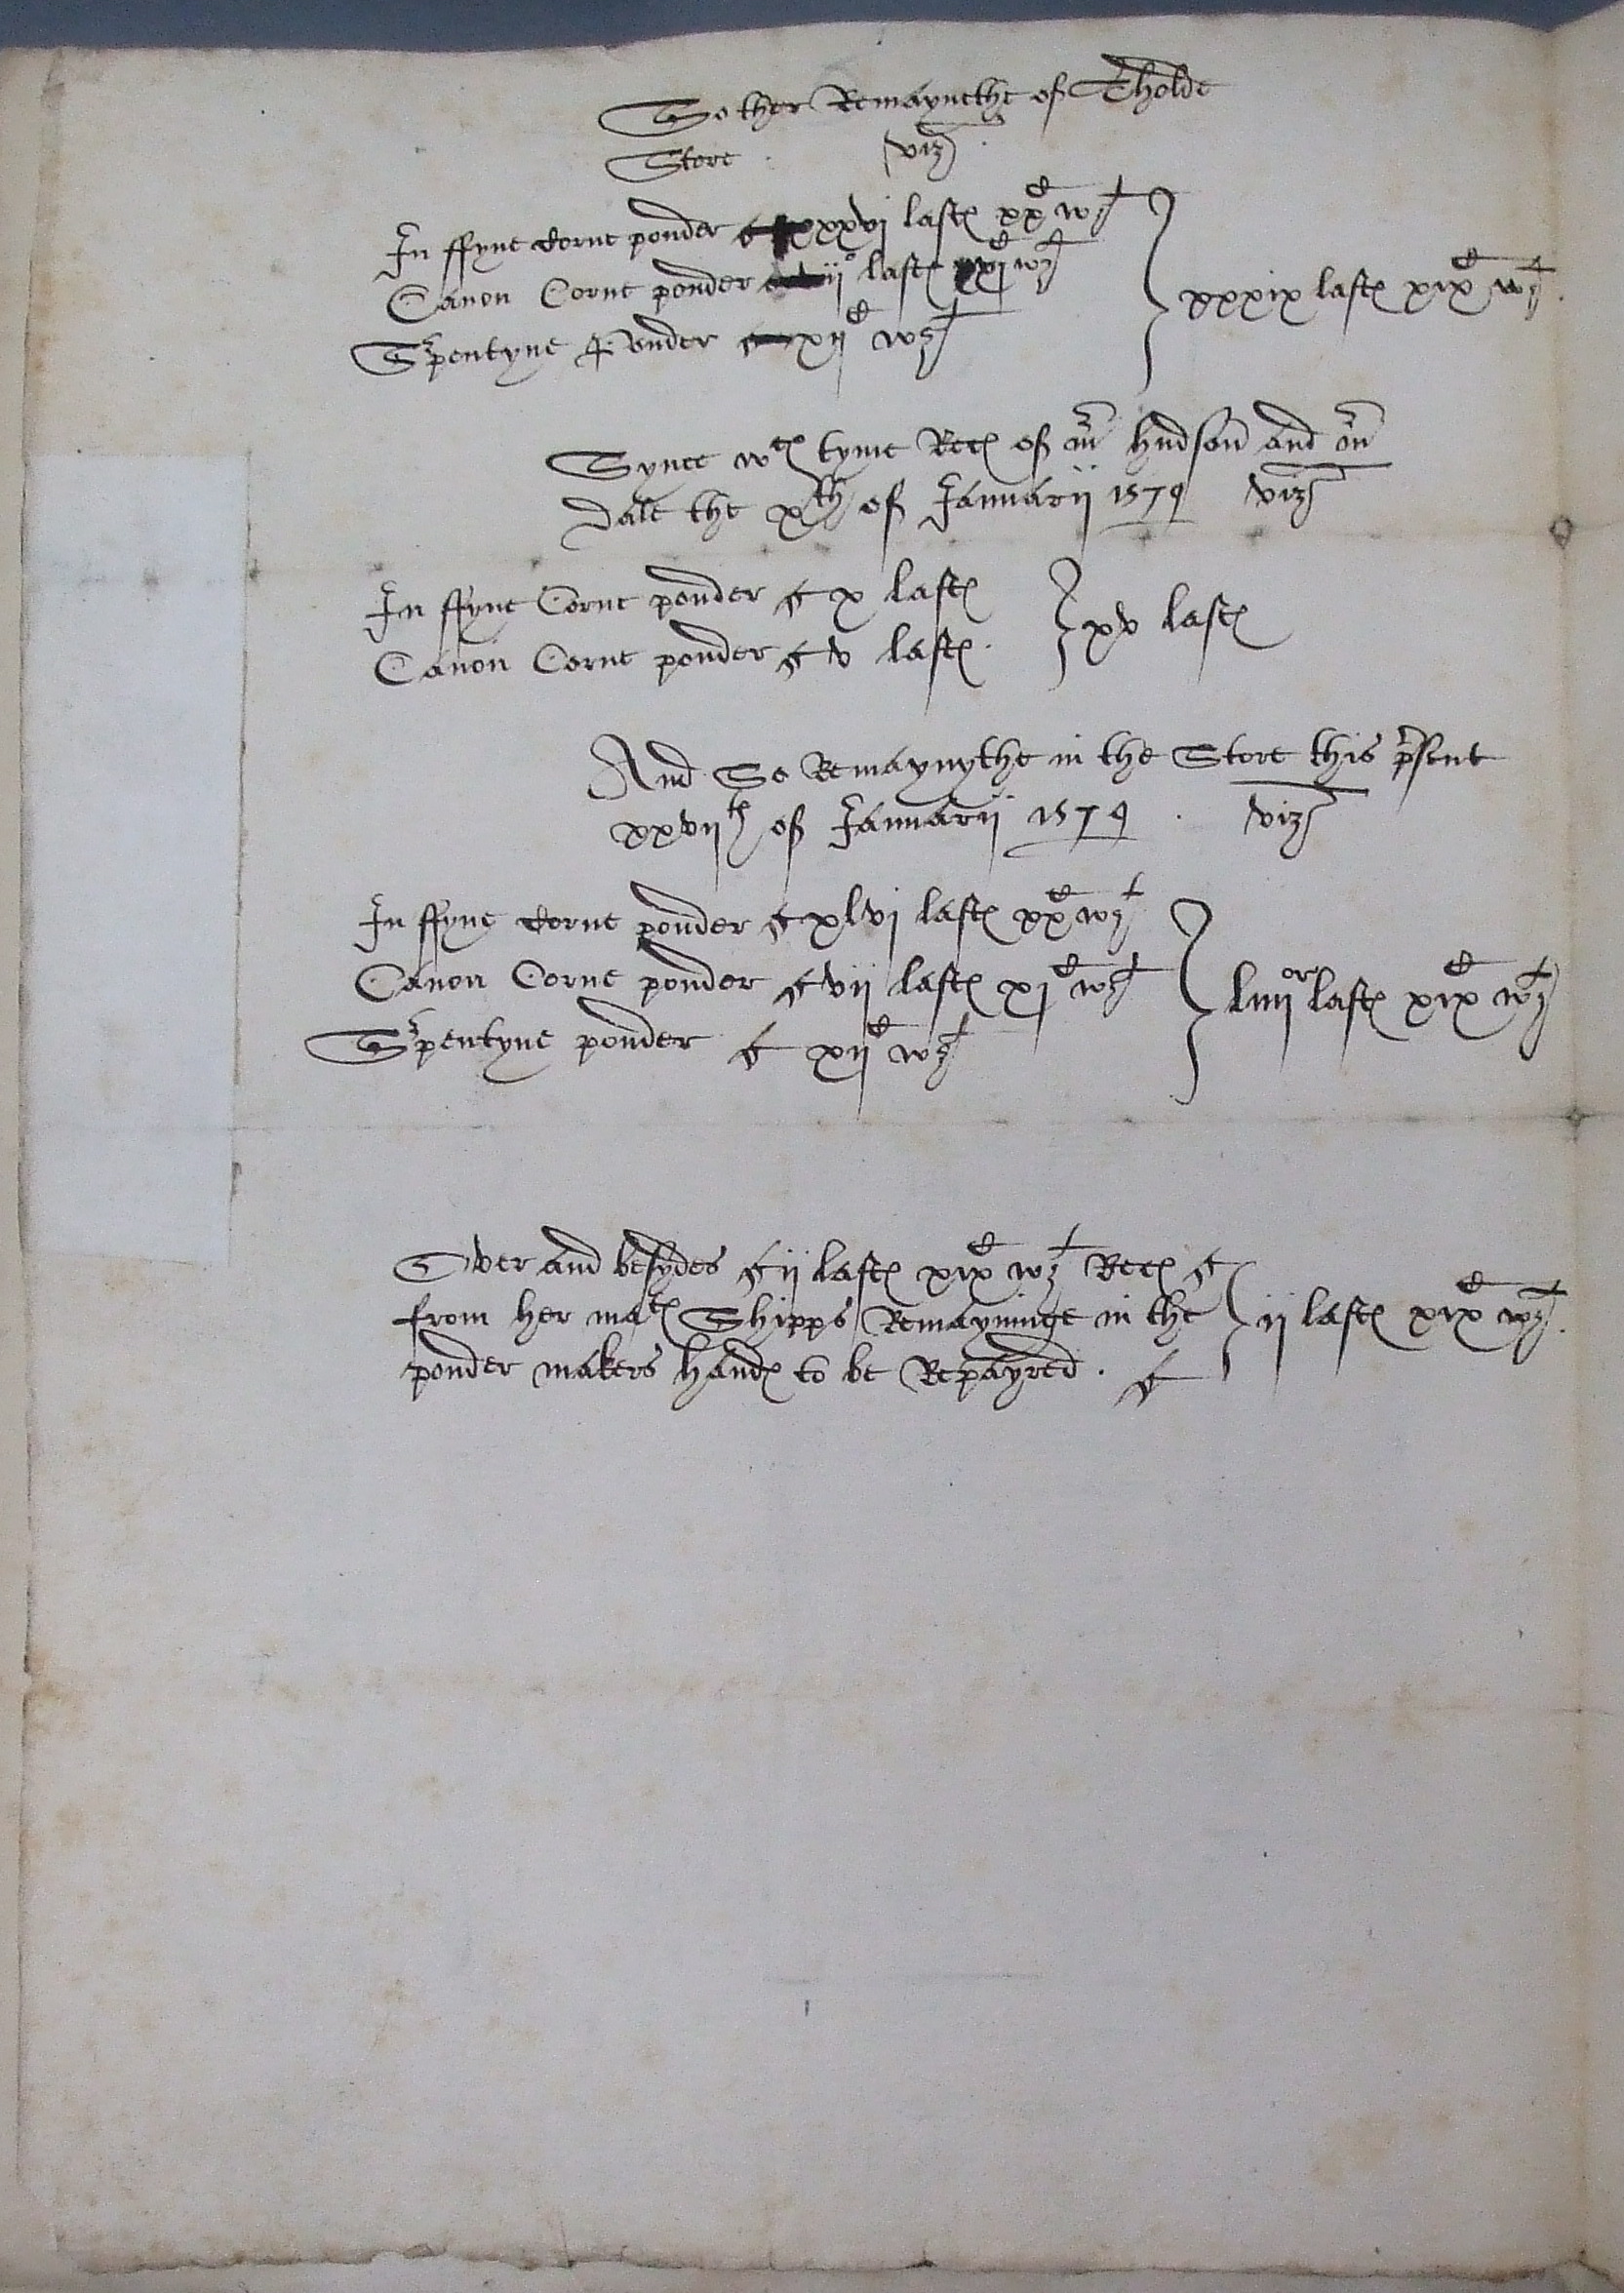 So ther Remaynethe of Tholde
Store viz
In ffyne Corne pouder xxxvi lastes xx d wt
Canon Corne pouder ii lastes xi d wt
Serpentyne Pouder xii d wt
xxxix lastes xix d wt
Synce wch tyme Rec of mr hudson and mr
Dale the xth of Januarii 1574 viz
In ffyne Corne pouder x lastes
Canon Corne pouder v lastes
xv lastes
And So Remaynythe in the Store this present
xxviith of Januarii 1574 viz
In ffyne Corne pouder xlvi lastes xx d wt
Canon Corne pouder vii lastes xi d wt
Serpentyne pouder xii d wt
liiii or lastes xix d wt
Over and besydes ii lastes xix d wt Rec
from her mates Shipps Remayninge in the
pouder makers handes to be Repayred.
ii lastes xix d wt